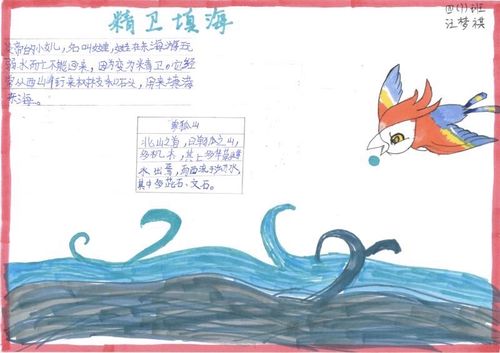 精卫填海
四(1)班
汪梦祺
炎帝的小儿,名叫女娃,女娃在东海游玩
溺水而亡不能回来,因为变为精卫。它经
常从西山衔来树枝和石头,用来填海
东海。
单狐山
北山之首,曰单狐之山,
多机木,其上多华草,
水出焉,而西流于水,
其中多芘石、文石。